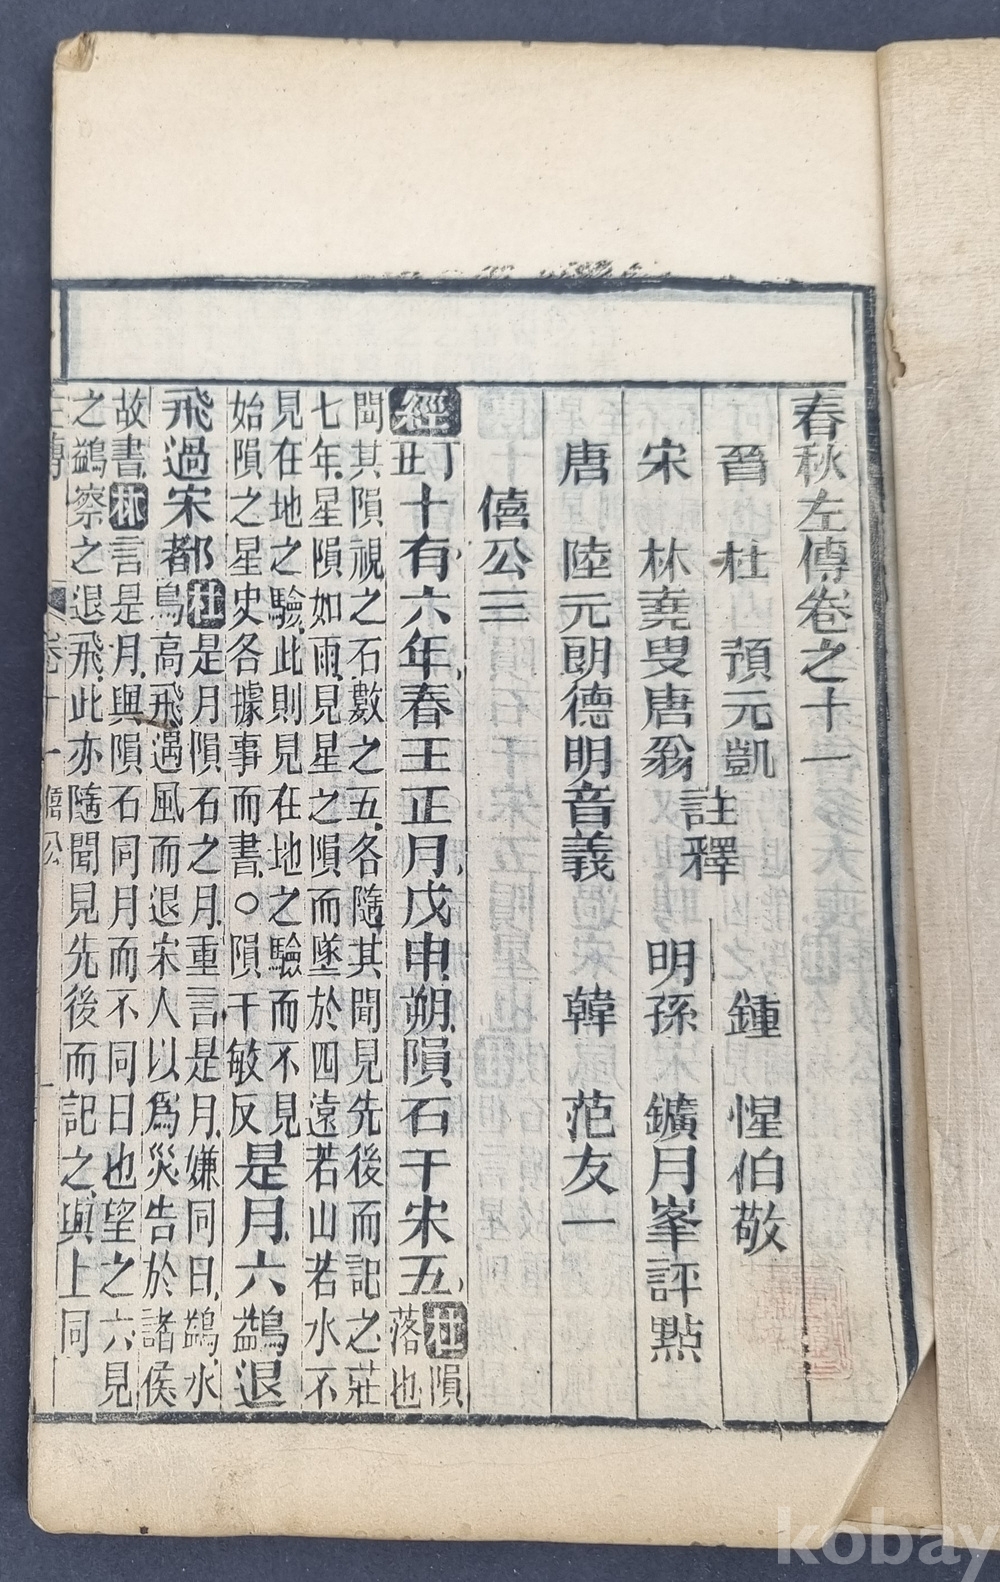 春秋左傳卷之十一
晉 杜 預元凱
註釋
鍾 惺伯敬
宋 林堯叟唐翁
明孫 鑛月峯評點
唐 陸元朗德明音義 韓 范友一
僖公三
經丁丑十有六年春王正月戊申朔隕石于宋五杜隕
落也
聞其隕視之石數之五各隨其聞見先後而記之莊
七年星隕如雨見星之隕而墜於四遠若山若水不
見在地之驗此則見在地之驗而不見
始隕之星史各據事而書○隕于敏反
是月六鷁退
飛過宋都杜是月隕石之月重言是月嫌同日鷁水
鳥高飛遇風而退宋人以爲災告於諸侯
故書林言是月與隕石同月而不同日也望之六見
之鷁察之退飛此亦隨聞見先後而記之與上同
左傳 卷十一 僖公
kobay